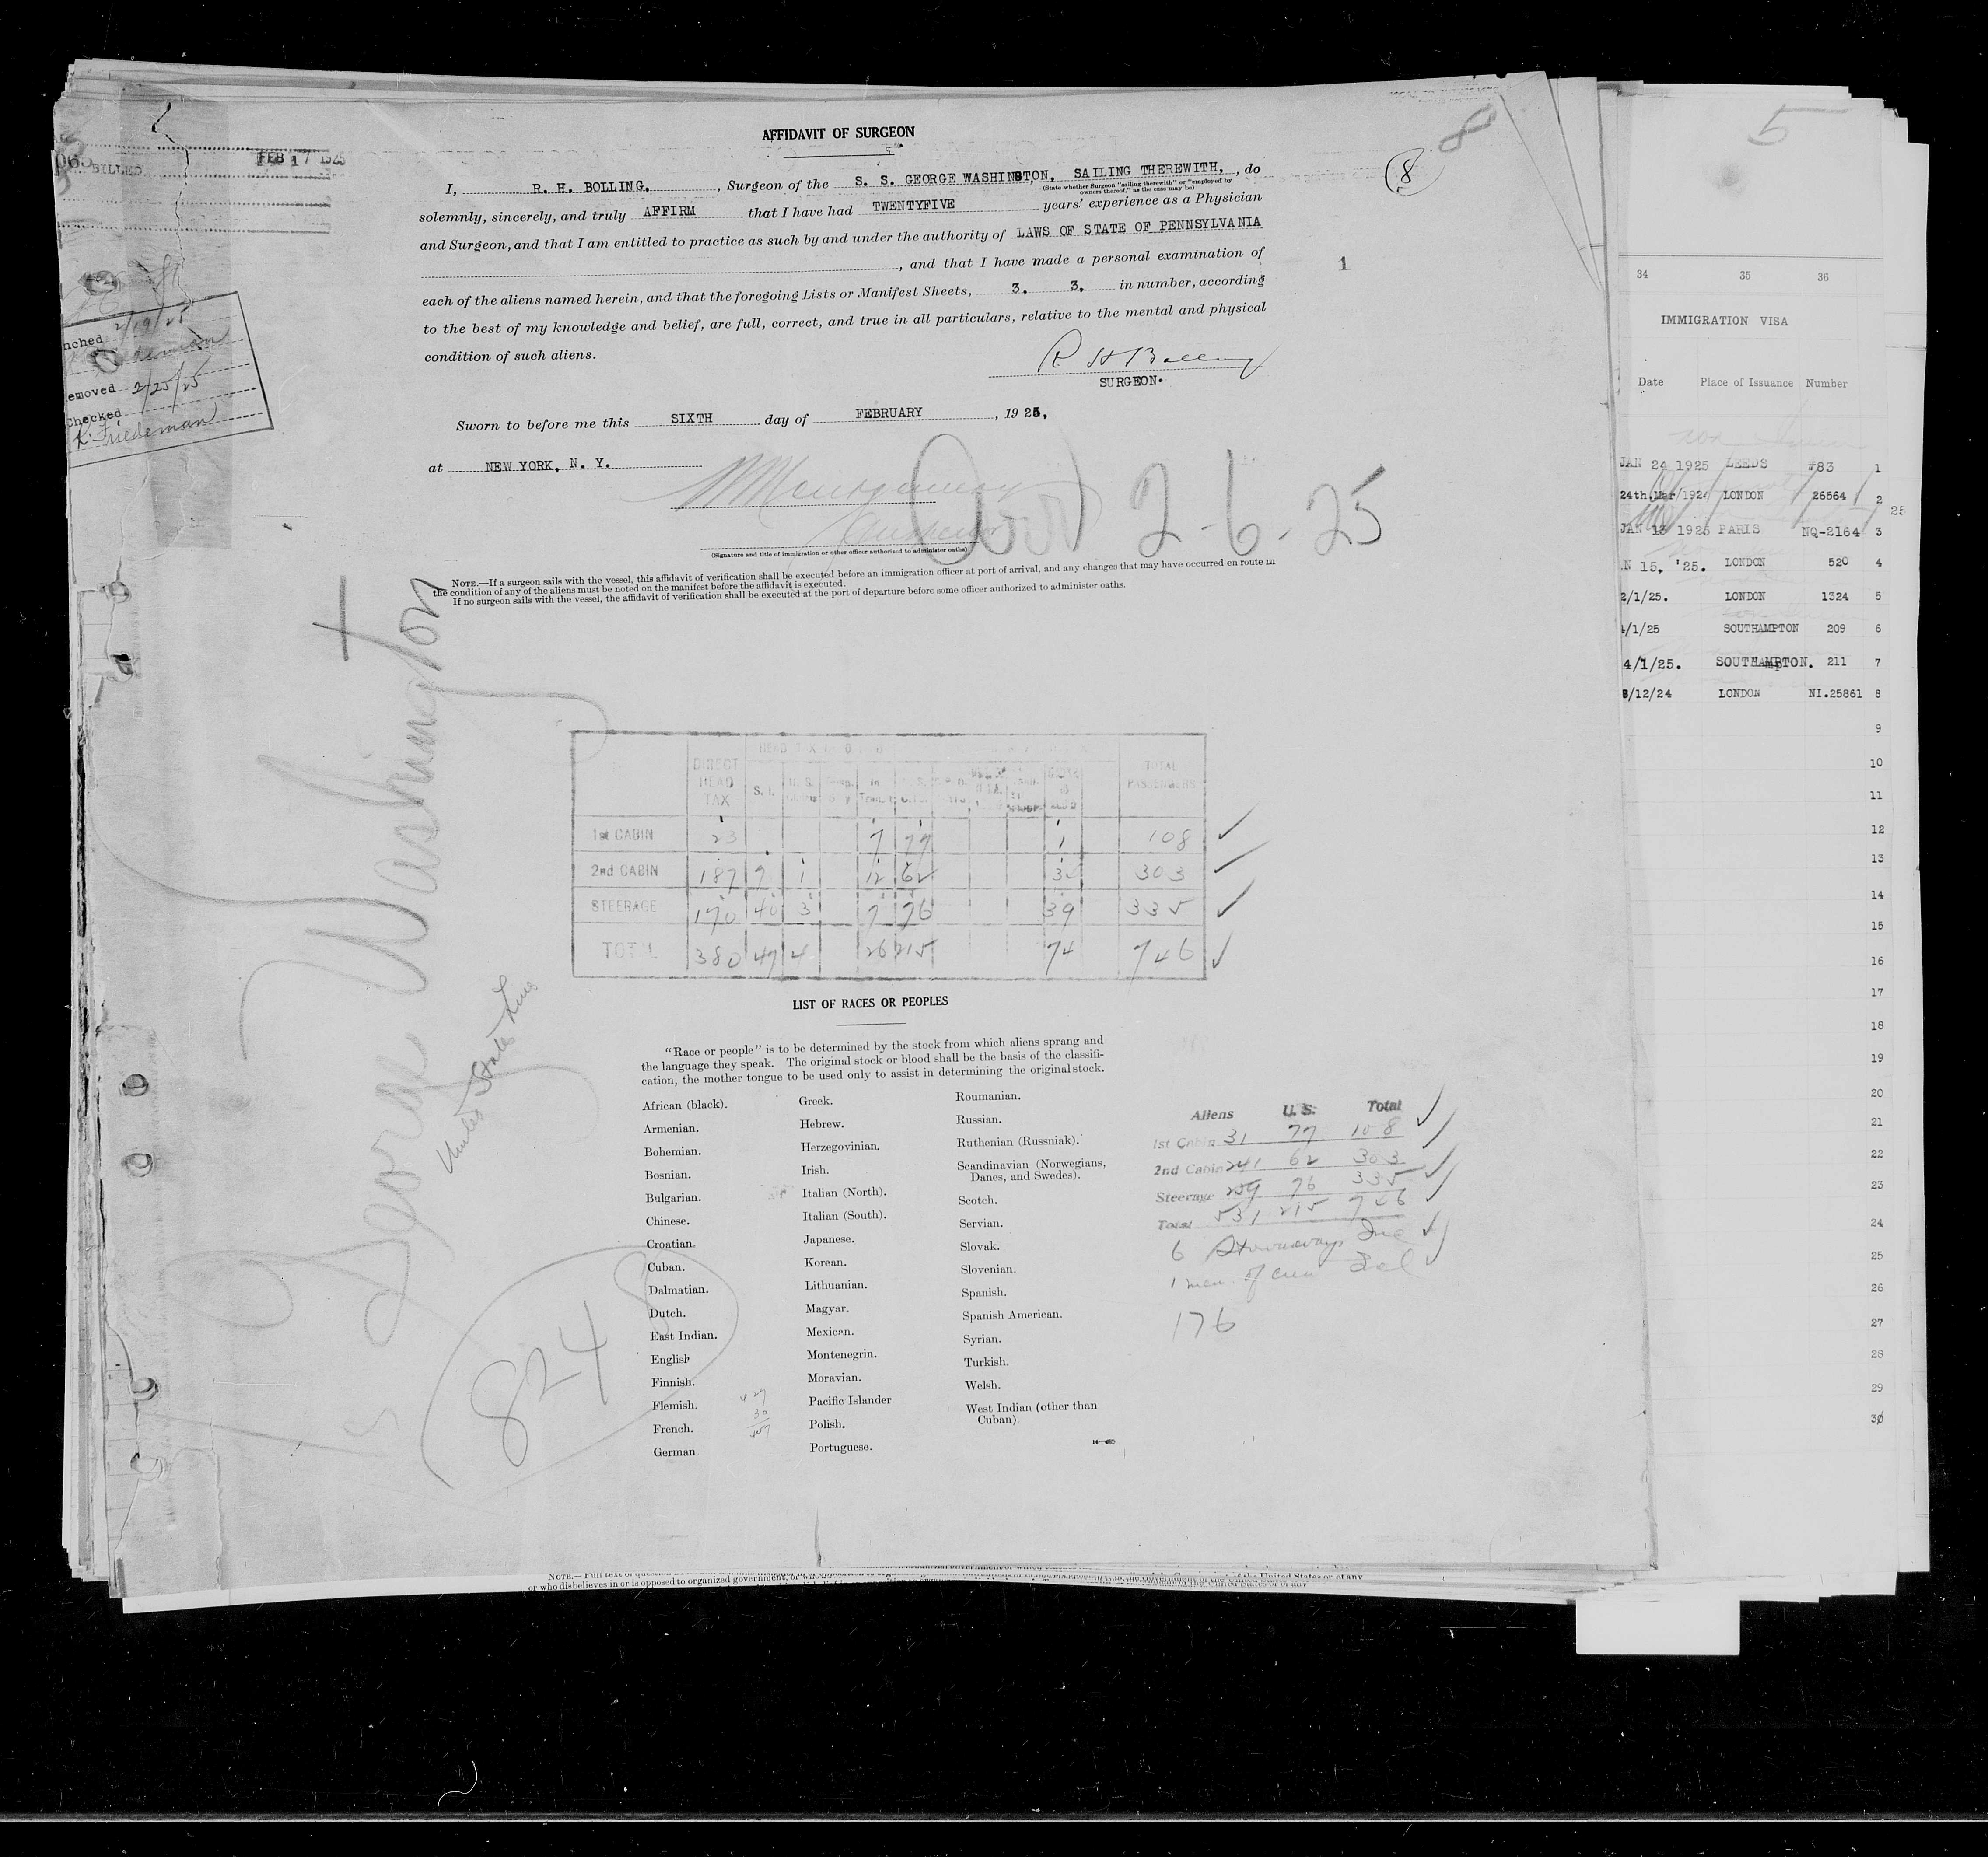 AFFIDAVIT OF SURGEON
8
8
FEB 17 1925
BILLED
I, R. H. BOLLING, , Surgeon of the S. S. GEORGE WASHINGTON, SAILING THEREWITH, , do
(State whether Surgeon "sailing therewith" or "employed by
owners thereof," as the case may be)
solemnly, sincerely, and truly AFFIRM that I have had TWENTYFIVE years' experience as a Physician
and Surgeon, and that I am entitled to practice as such by and under the authority of LAWS OF STATE OF PENNSYLVANIA
, and that I have made a personal examination of
1
each of the aliens named herein, and that the foregoing Lists or Manifest Sheets, 3. 3. in number, according
to the best of my knowledge and belief, are full, correct, and true in all particulars, relative to the mental and physical
condition of such aliens.
R H Bolling
SURGEON.
Sworn to before me this SIXTH day of FEBRUARY , 1925.
at NEW YORK, N. Y.
Montgomery
2-6-25
(Signature and title of immigration or other officer authorized to administer oaths)
NOTE.—If a surgeon sails with the vessel, this affidavit of verification shall be executed before an immigration officer at port of arrival, and any changes that may have occurred en route in
the condition of any of the aliens must be noted on the manifest before the affidavit is executed.
If no surgeon sails with the vessel, the affidavit of verification shall be executed at the port of departure before some officer authorized to administer oaths.
nched 2/19/25
emoved 2/25/25
Checked
K. Friedeman
George Washington
United States Lines
824
DIRECT HEAD TAX S. I. U. S. In Transit TOTAL PASSENGERS
1st CABIN 23 7 77 1 108
2nd CABIN 187 7 1 12 62 34 303
STEERAGE 170 40 3 7 76 39 335
TOTAL 380 47 4 26 215 74 746
LIST OF RACES OR PEOPLES
"Race or people" is to be determined by the stock from which aliens sprang and
the language they speak. The original stock or blood shall be the basis of the classifi-
cation, the mother tongue to be used only to assist in determining the original stock.
African (black).
Armenian.
Bohemian.
Bosnian.
Bulgarian.
Chinese.
Croatian.
Cuban.
Dalmatian.
Dutch.
East Indian.
English
Finnish.
Flemish.
French.
German
Greek.
Hebrew.
Herzegovinian.
Irish.
Italian (North).
Italian (South).
Japanese.
Korean.
Lithuanian.
Magyar.
Mexican.
Montenegrin.
Moravian.
Pacific Islander
Polish.
Portuguese.
Roumanian.
Russian.
Ruthenian (Russniak).
Scandinavian (Norwegians,
Danes, and Swedes).
Scotch.
Servian.
Slovak.
Slovenian.
Spanish.
Spanish American.
Syrian.
Turkish.
Welsh.
West Indian (other than
Cuban).
Aliens U. S. Total
1st Cabin 31 77 108
2nd Cabin 241 62 303
Steerage 259 76 335
Total 531 215 746
6 Stowaways Inc
1 mem. of crew
176
NOTE.— Full text of question
or who disbelieves in or is opposed to organized government, or who
5
34 35 36
IMMIGRATION VISA
Date Place of Issuance Number
JAN 24 1925 LEEDS #83 1
24th.Mar/1924 LONDON 26564 2
25
JAN 13 1925 PARIS NQ-2164 3
N 15. '25. LONDON 520 4
2/1/25. LONDON 1324 5
/1/25 SOUTHAMPTON 209 6
4/1/25. SOUTHAMPTON. 211 7
8/12/24 LONDON NI.25861 8
9
10
11
12
13
14
15
16
17
18
19
20
21
22
23
24
25
26
27
28
29
30